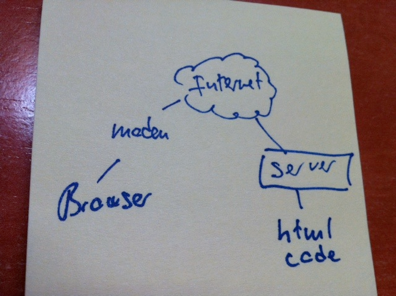 Internet
moden
Browser
server
html
code